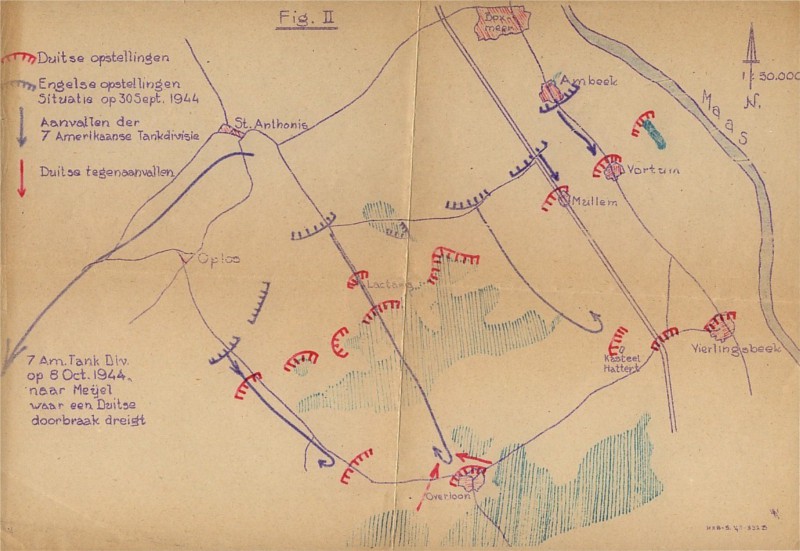 Fig. II
Duitse opstellingen
Engelse opstellingen
Situatie op 30 Sept. 1944
Aanvallen der
7 Amerikaanse Tankdivisie
Duitse tegenaanvallen
Box-
meer
1:50.000
N.
Maas
Ambeek
St. Anthonis
Vortum
Mullem
Oplos
Lactaria
Vierlingsbeek
Kasteel
Hattert
7 Am. Tank Div.
op 8 Oct. 1944
naar Meijel
waar een Duitse
doorbraak dreigt
Overloon